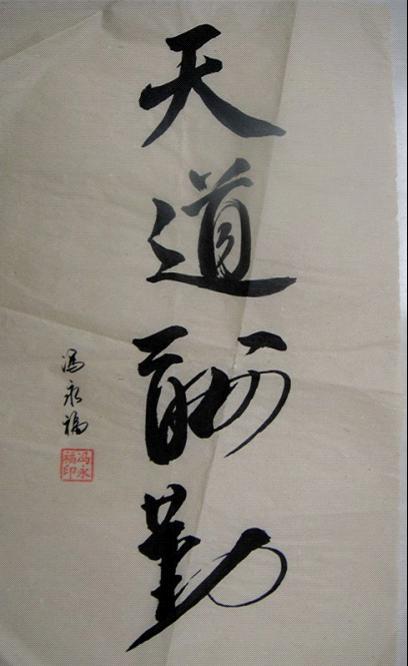 天道酬勤
冯永福
冯永福印